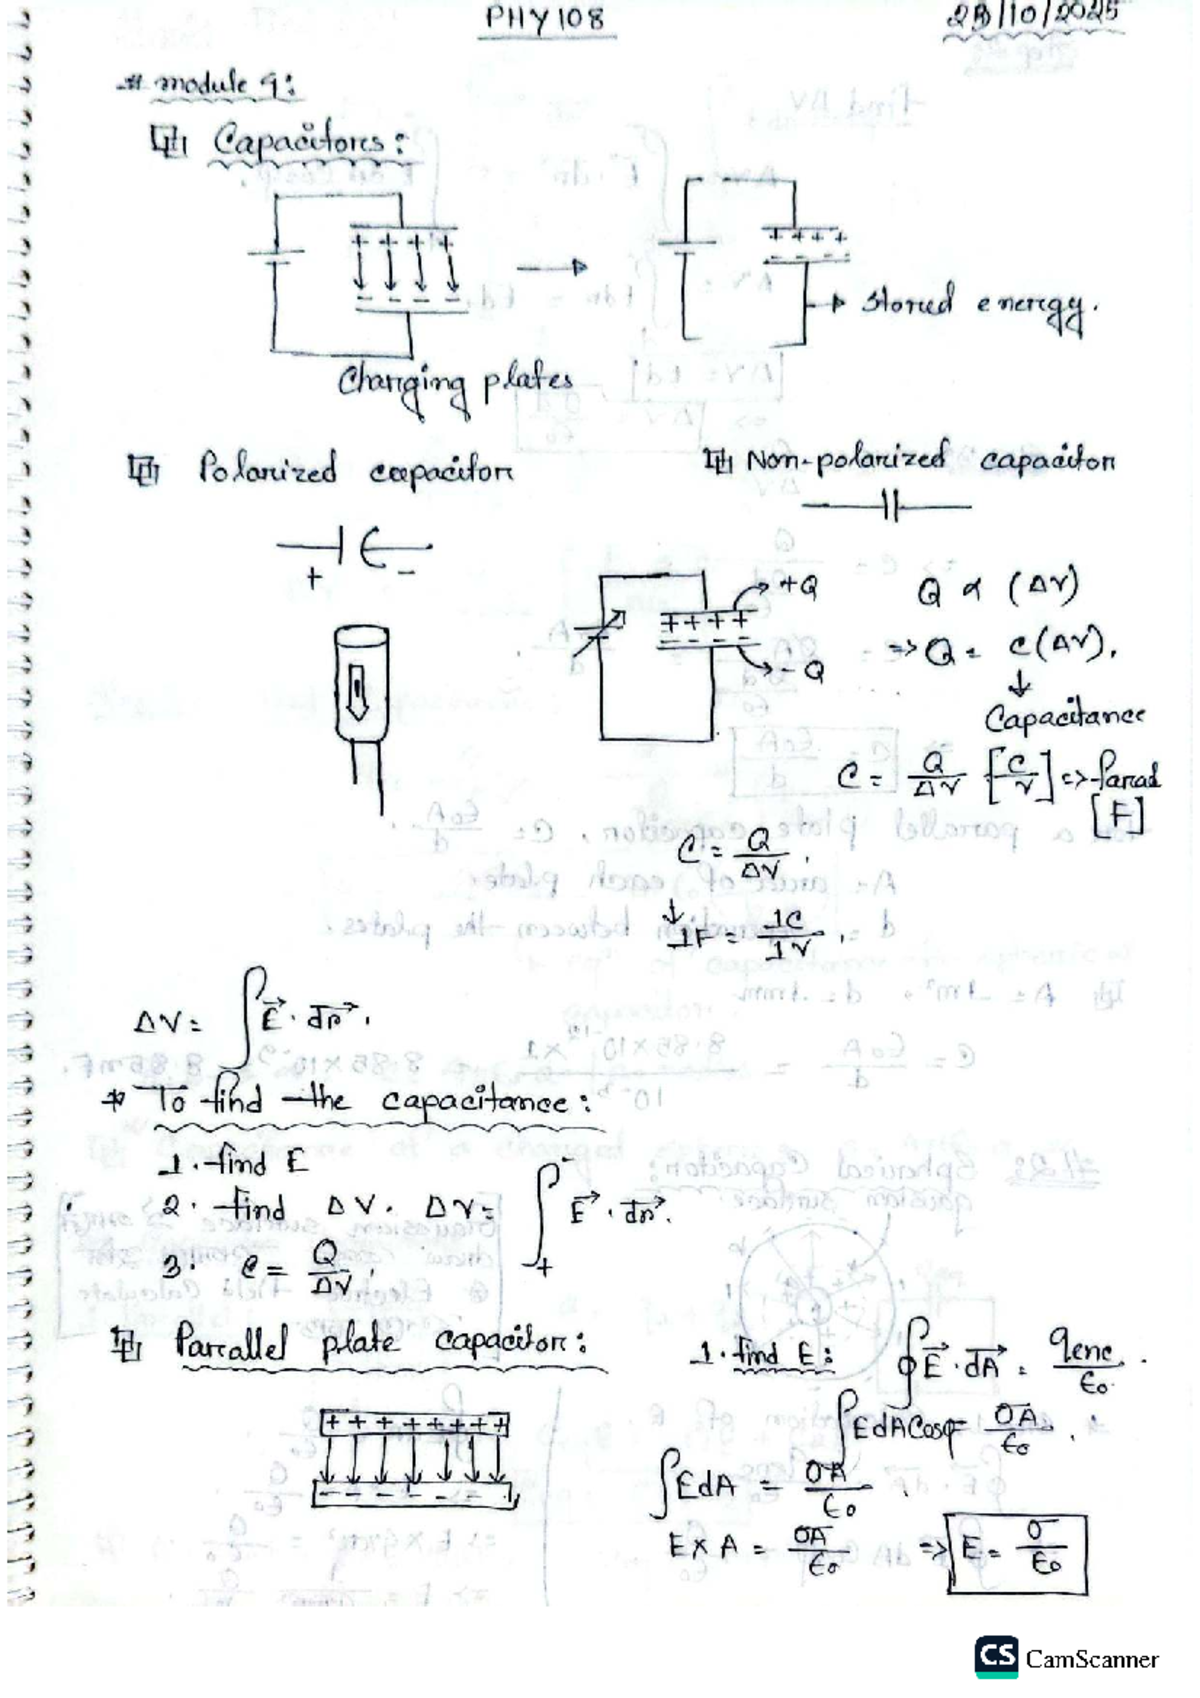 PHY 108
23/10/2025
# module 9:
Capacitors:
+ + + +
- - - -
+ + + +
- - - -
→ Stored energy.
Charging plates
Polarized capacitor
Non-polarized capacitor
+ -
+Q
+ + + +
- - - -
-Q
Q ∝ (ΔV)
⇒ Q = C(ΔV),
↓
Capacitance
C = Q/ΔV [C/V] ⇒ Farad
[F]
C = Q/ΔV.
↓
1F = 1C/1V.
ΔV = ∫ E⃗ · dr⃗.
* To find the capacitance:
1. find E
2. find ΔV. ΔV = ∫₊⁻ E⃗ · dr⃗.
3. C = Q/ΔV.
Parallel plate capacitor:
1. find E: ∮ E⃗ · dA⃗ = qenc/ϵ₀.
+ + + + + + + +
- - - - - -
∫ E dA Cosφ = σA/ϵ₀.
∫ E dA = σA/ϵ₀.
E × A = σA/ϵ₀ ⇒ E = σ/ϵ₀
CS CamScanner